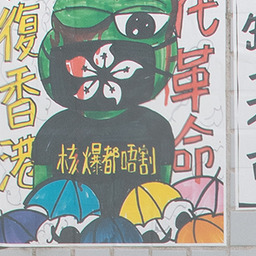 復香港
代革命
核爆都唔割